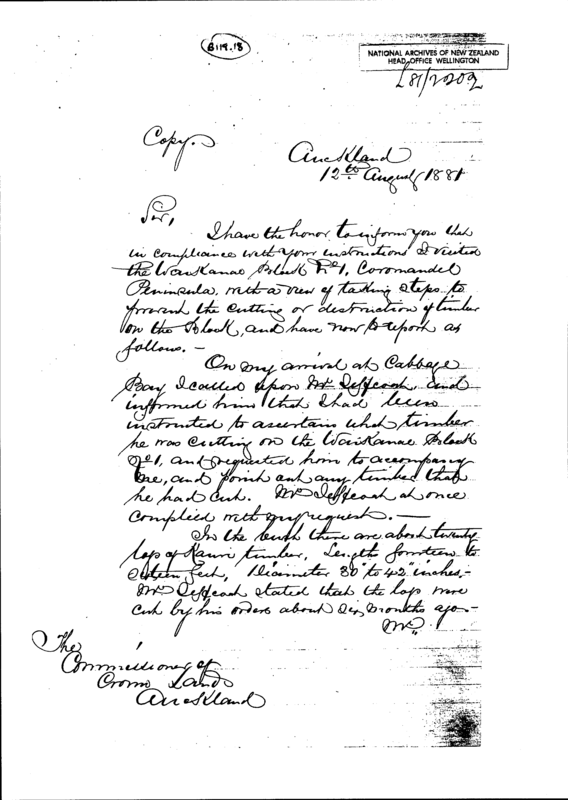 B119.18
NATIONAL ARCHIVES OF NEW ZEALAND
HEAD OFFICE WELLINGTON
L81/2202
Copy.
Auckland
12th August 1881
Sir,
I have the honor to inform you that
in compliance with your instructions I visited
the Waikanae Block No 1, Coromandel
Peninsula, with a view of taking steps to
prevent the cutting or destruction of timber
on the Block, and have now to report as
follows. —
On my arrival at Cabbage
Bay I called upon Mr, and
informed him that I had been
instructed to ascertain what timber
he was cutting on the Waikanae Block
No 1, and requested him to accompany
me, and point out any timber that
he had cut. Mr at once
complied with my request. —
In the bush there are about twenty
logs of Kauri timber, Lengths fourteen to
sixteen feet, Diameter 30" to 42" inches,
Mr stated that the logs were
cut by his orders about six months ago —
Mr
The
Commissioner of
Crown Lands
Auckland